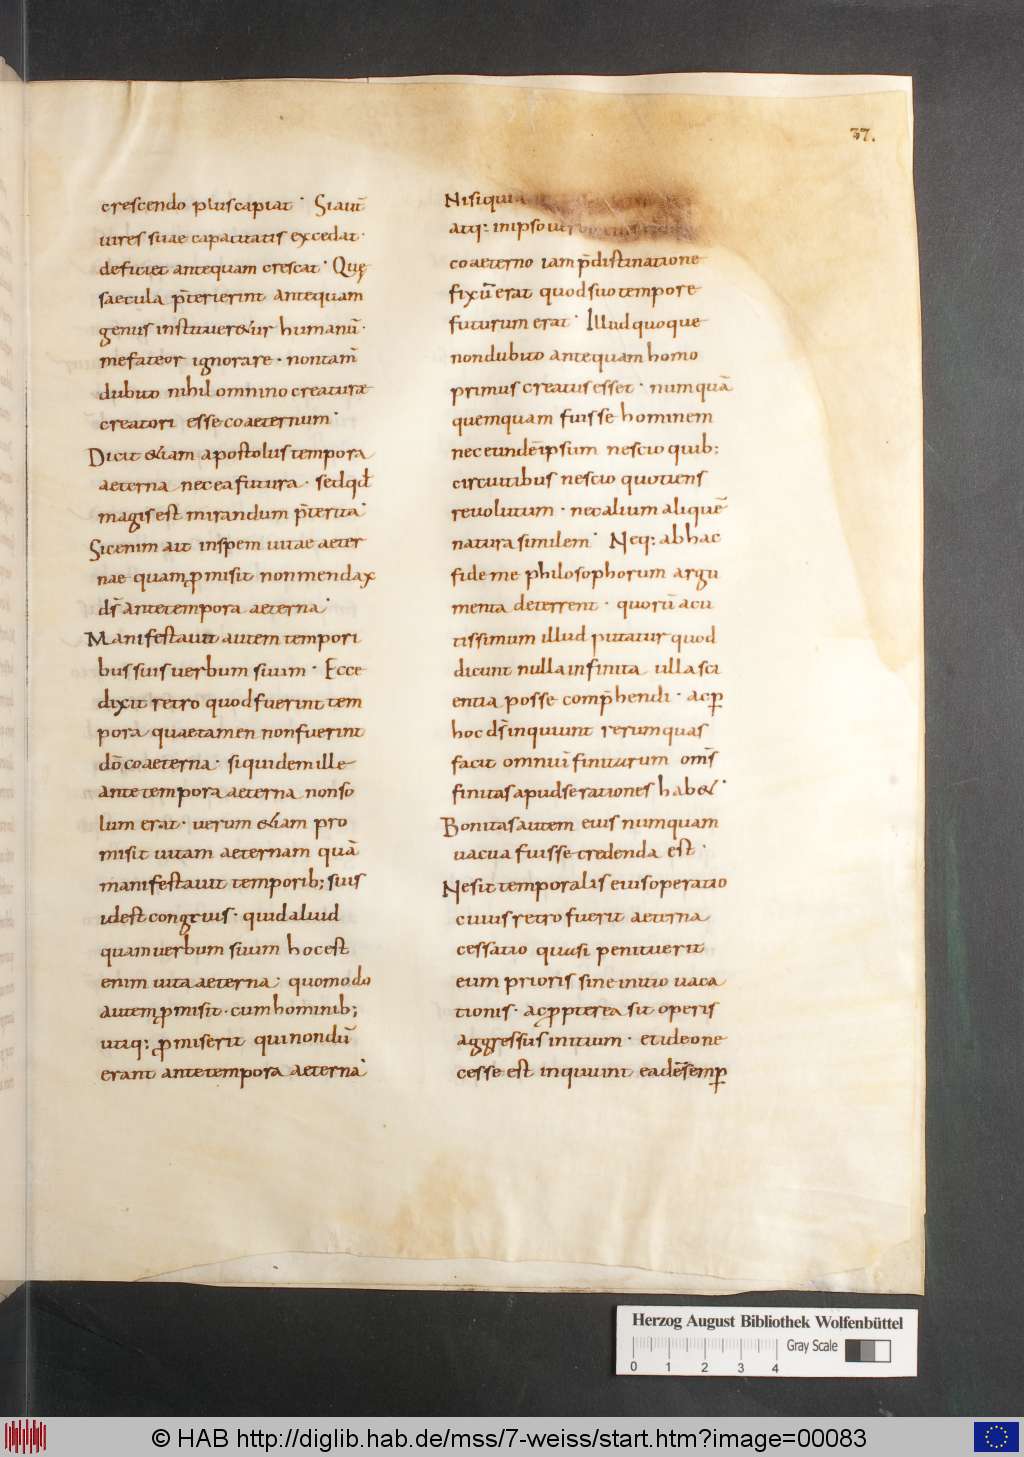 37.
crescendo plus capiat · Si aut̄
uires suae capacitatis excedat ·
deficiet antequam crescat · Quę
saecula p̄terierint antequam
genus institueretur humanū ·
me fateor ignorare · non tam̄
dubito nihil omnino creaturae
creatori esse coaeternum ·
Dicit etiam apostolus tempora
aeterna nec ea futura · sed qđ
magis est mirandum p̄terita ·
Sic enim ait in spem uitae aeter
nae quam ꝓmisit non mendax
ds̄ ante tempora aeterna ·
Manifestauit autem tempori
bus suis uerbum suum · Ecce
dixit retro quod fuerint tem
pora quae tamen non fuerint
dō coaeterna · siquidem ille
ante tempora aeterna non so
lum erat · uerum etiam pro
misit uitam aeternam quā
manifestauit temporib; suis
id est congruis · quid aliud
quam uerbum suum hoc est
enim uita aeterna; quomodo
autem ꝓmisit · cum hominib;
utiq: ꝓmiserit qui nondū
erant ante tempora aeterna ·
Nisi quia
atq: in ipso
coaeterno iam p̄distinatione
fixū erat quod suo tempore
futurum erat · Illud quoque
non dubito antequam homo
primus creatus esset · numquā
quemquam fuisse hominem
nec eundē ipsum nescio quib:
circuitibus nescio quotiens
reuolutum · nec alium aliquē
natura similem · Neq: ab hac
fide me philosophorum argu
menta deterrent · quorū acu
tissimum illud putatur quod
dicunt nulla infinita ulla sci
entia posse comp̄hendi · ac ꝑ
hoc ds̄ inquiunt rerum quas
facit omniū finitarum om̄s
finitas apud se rationes habet ·
Bonitas autem eius numquam
uacua fuisse credenda est ·
Ne sit temporalis eius operatio
cuius retro fuerit aeterna
cessatio quasi penituerit
eum prioris sine initio uaca
tionis · ac ꝓpterea sit operis
aggressus initium · et ideo ne
cesse est inquiunt eadē semꝑ
Herzog August Bibliothek Wolfenbüttel
0 1 2 3 4 Gray Scale
© HAB http://diglib.hab.de/mss/7-weiss/start.htm?image=00083